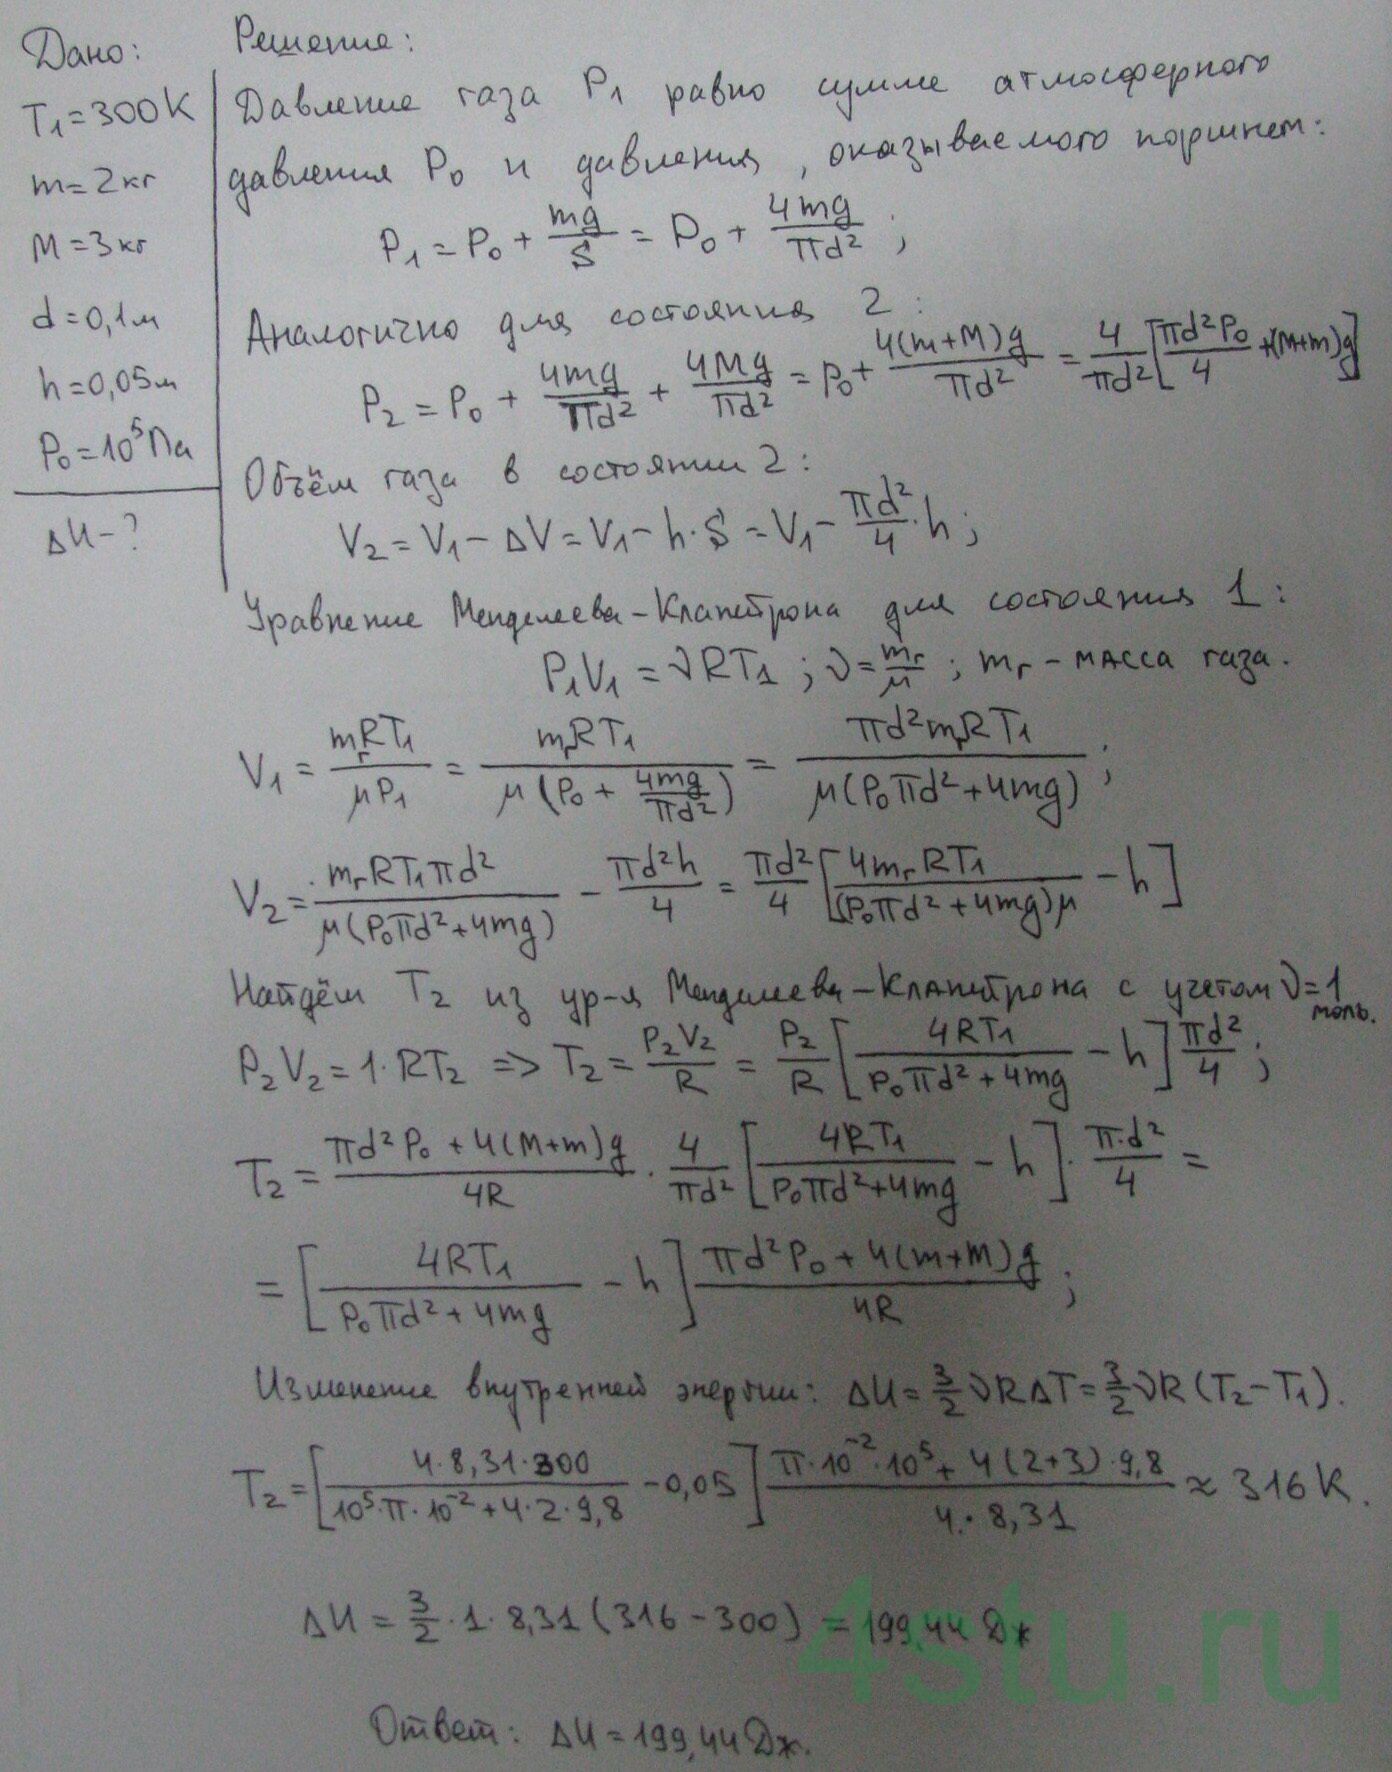 Дано:
T₁=300К
m=2кг
M=3кг
d=0,1м
h=0,05м
P₀=10⁵Па
ΔU-?
Решение:
Давление газа P₁ равно сумме атмосферного
давления P₀ и давления, оказываемого поршнем:
P₁=P₀+mg/S=P₀+4mg/πd²;
Аналогично для состояния 2:
P₂=P₀+4mg/πd²+4Mg/πd²=P₀+4(m+M)g/πd²=4/πd²[πd²P₀/4+(M+m)g]
Объём газа в состоянии 2:
V₂=V₁-ΔV=V₁-h·S=V₁-πd²/4·h;
Уравнение Менделеева-Клапейрона для состояния 1:
P₁V₁=νRT₁; ν=mг/μ; mг-масса газа.
V₁=mгRT₁/μP₁=mгRT₁/μ(P₀+4mg/πd²)=πd²mгRT₁/μ(P₀πd²+4mg);
V₂=mгRT₁πd²/μ(P₀πd²+4mg)-πd²h/4=πd²/4[4mгRT₁/(P₀πd²+4mg)μ-h]
Найдём T₂ из ур-я Менделеева-Клапейрона с учетом ν=1 моль.
P₂V₂=1·RT₂ => T₂=P₂V₂/R=P₂/R[4RT₁/P₀πd²+4mg-h]πd²/4;
T₂=πd²P₀+4(M+m)g/4R·4/πd²[4RT₁/P₀πd²+4mg-h]·π·d²/4=
=[4RT₁/P₀πd²+4mg-h]πd²P₀+4(m+M)g/4R;
Изменение внутренней энергии: ΔU=3/2νRΔT=3/2νR(T₂-T₁).
T₂=[4·8,31·300/10⁵·π·10⁻²+4·2·9,8-0,05]π·10⁻²·10⁵+4(2+3)·9,8/4·8,31≈316К.
ΔU=3/2·1·8,31(316-300)=199,44Дж
Ответ: ΔU=199,44Дж.
4stu.ru